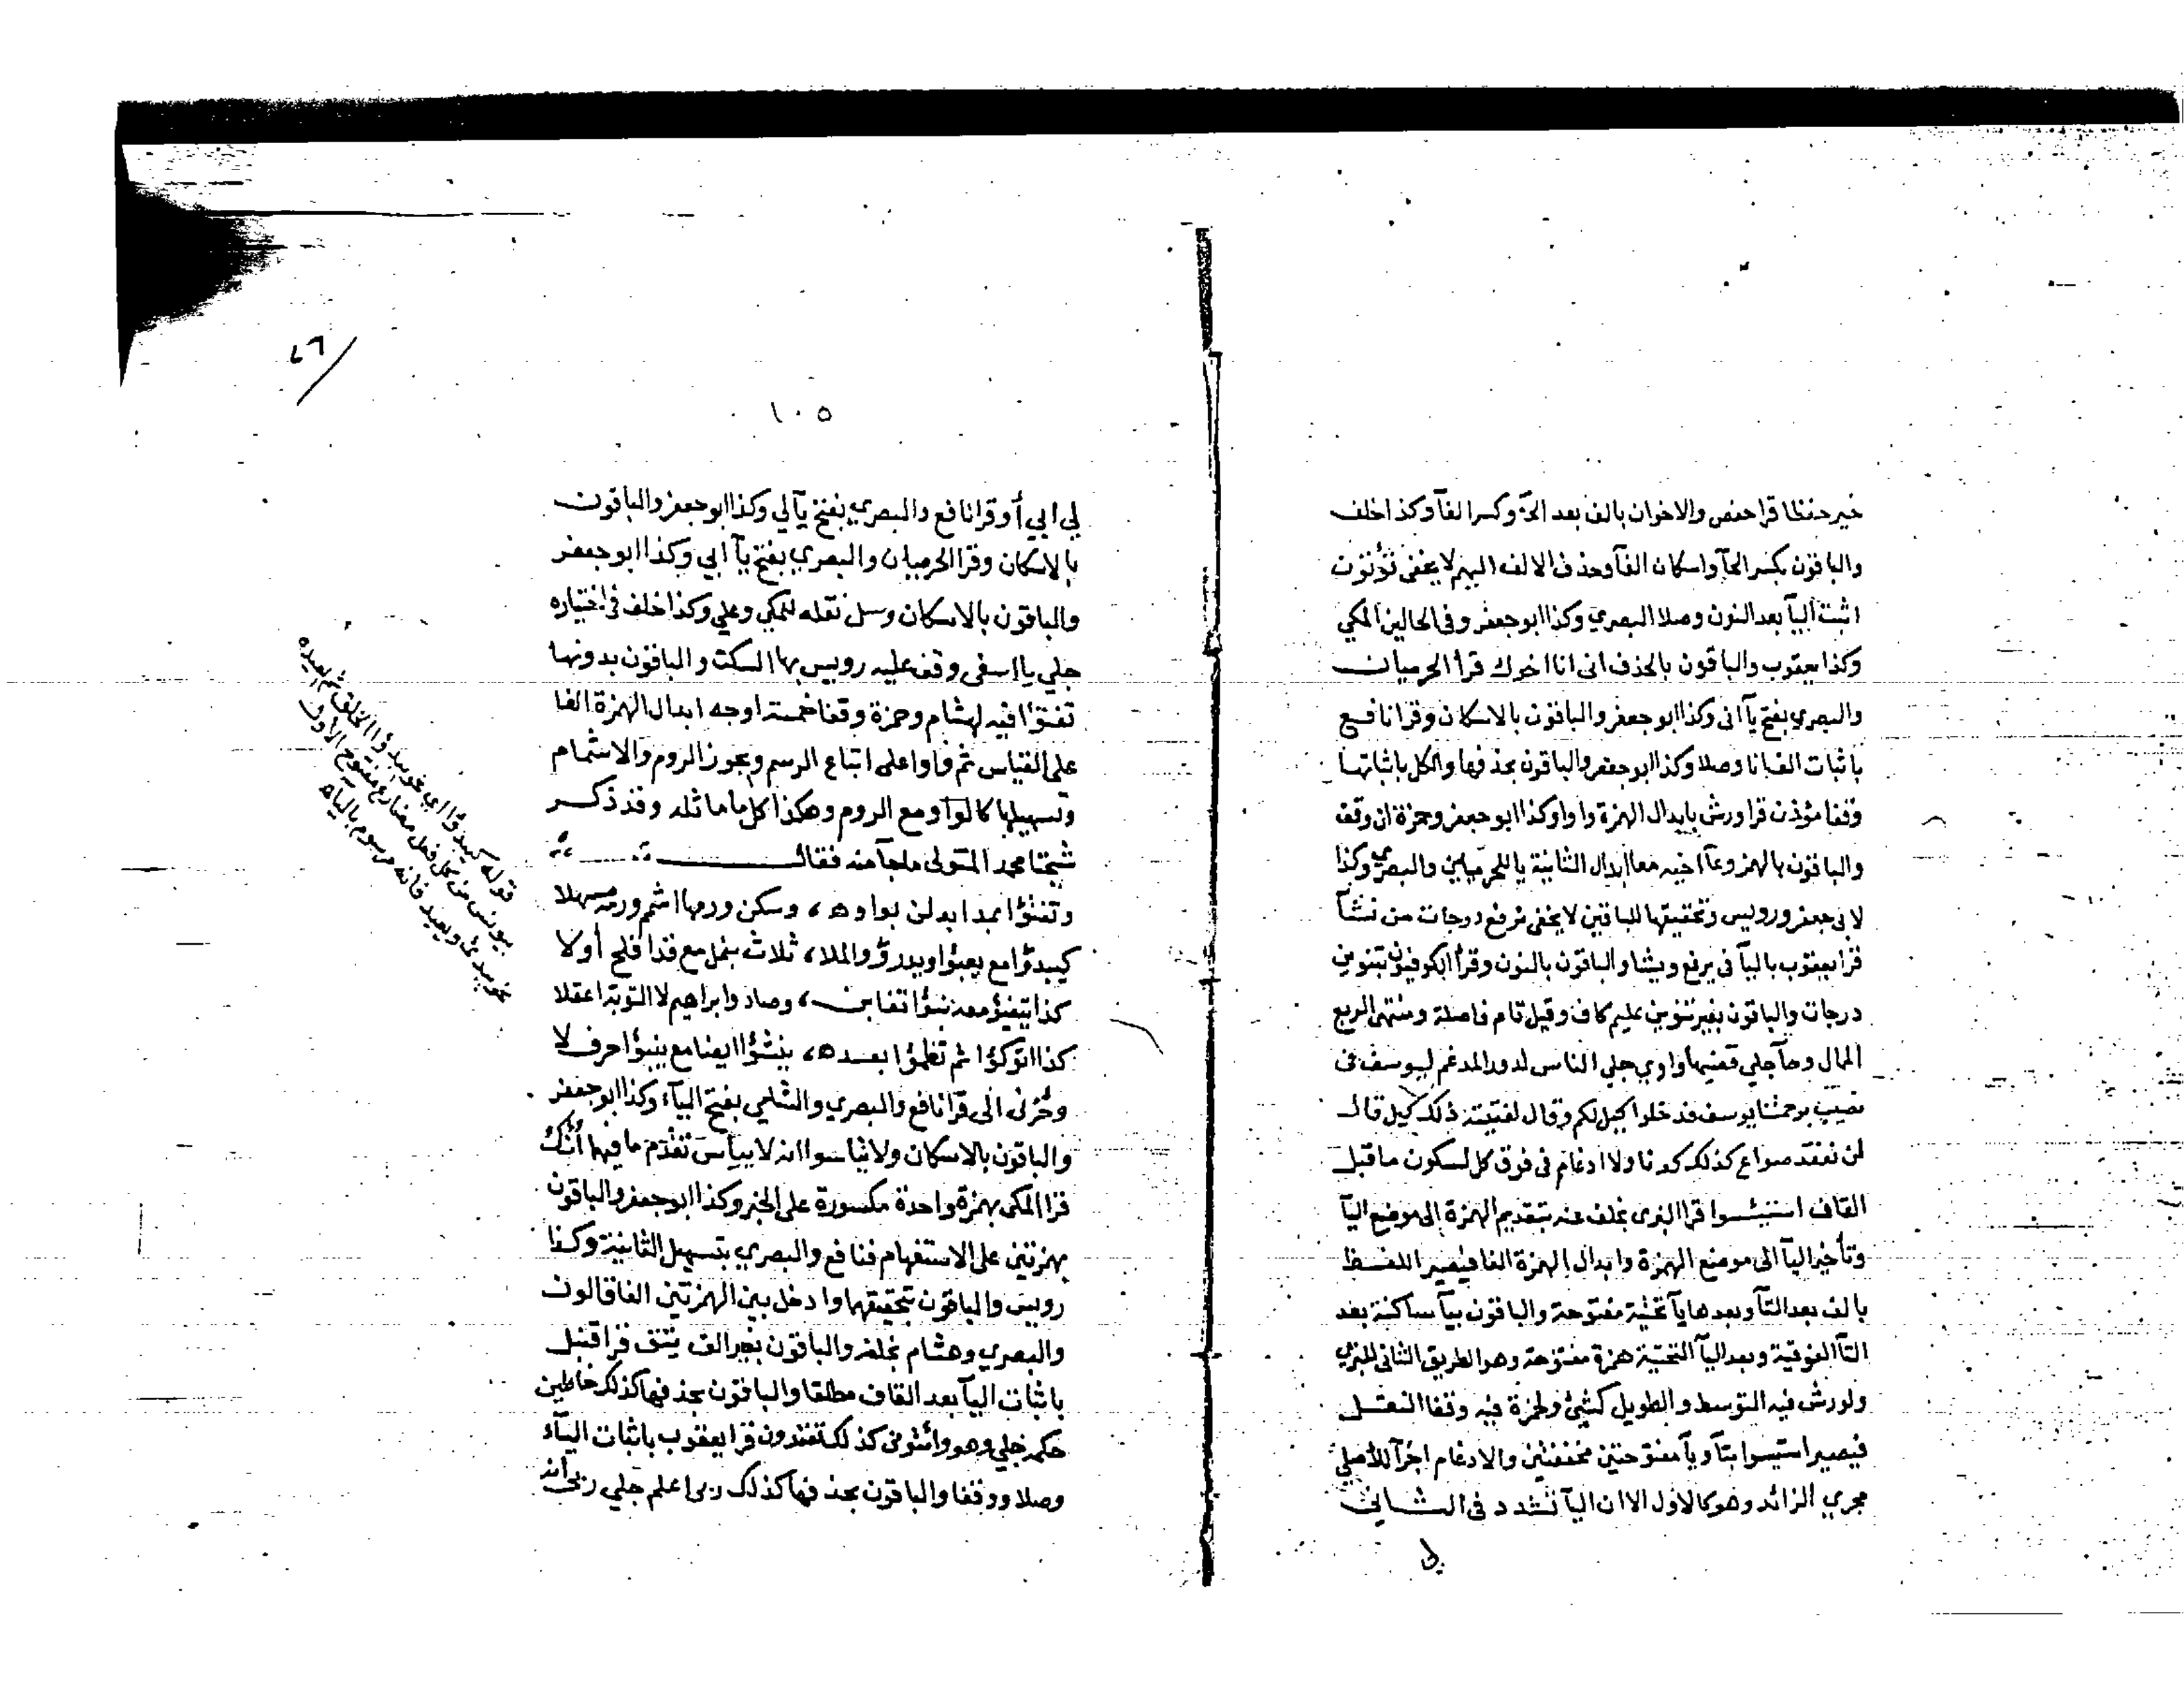 خير حفظا قرا حفص والاخوان بالف بعد الحآ وكسر الفآ وكذا خلف
والباقون بكسر الحآ واسكان الفآ وحذف الالف اليهم لا يخفى تؤتون
اثبت اليآ بعد النون وصلا البصري وكذا ابو جعفر وفى الحالين المكي
وكذا يعقوب والباقون بالحذف انى انا اخوك قرأ الحرميان
والبصري بفتح يآ انى وكذا ابو جعفر والباقون بالاسكان وقرا نافع
باثبات الف انا وصلا وكذا ابو جعفر والباقون بحذفها والكل باثباتها
وقفا مؤذن قرا ورش بابدال الهمزة واوا وكذا ابو جعفر وحمزة ان وقف
والباقون بالهمز وعآ اخيه معا ابدال الثانية يا للحرميين والبصري وكذا
لابى جعفر ورويس وتحقيقها للباقين لا يخفى نرفع درجات من نشآ
قرا يعقوب باليآ فى يرفع ويشا والباقون بالنون وقرأ الكوفيون بتنوين
درجات والباقون بغير تنوين عليم كاف وقيل تام فاصلة ومنتهى الربع
الممال وجآ جلي قضيها واوي جلي الناس لدور المدغم ليوسف فى
نصيب برحمتنا يوسف فدخلوا كيل لكم وقال لفتيته ذلك كيل قال
لن نفقد صواع كذلك كدنا ولا ادغام فى فوق كل لسكون ما قبل
القاف استيئسوا قرا البزى بخلف عنه بتقديم الهمزة الى موضع اليآ
وتأخير اليآ الى موضع الهمزة وابدال الهمزة الفا فيصير اللفظ
بالف بعد التآ وبعدها يآ تحتية مفتوحة والباقون بيآ ساكنة بعد
التآ الفوقية وبعد اليآ التحتية همزة مفتوحة وهو الطريق الثانى للبزي
ولورش فيه التوسط والطويل كشئ ولحمزة فيه وقفا النقل
فيصير استيسوا بتآ ويآ مفتوحتين مخففتين والادغام اجرآ للأصلي
مجري الزائد وهو كالاول الا ان اليآ تشدد فى الثانى
لى
٤٦
١٠٥
لى ابي أو قرا نافع والبصري بفتح يآ لي وكذا ابو جعفر والباقون
بالاسكان وقرا الحرميان والبصري بفتح يآ ابي وكذا ابو جعفر
والباقون بالاسكان وسل نقله للمكي وعلي وكذا خلف فى اختياره
جلي يا اسفى وقف عليه رويس بها السكت والباقون بدونها
تفتؤا فيه لهشام وحمزة وقفا خمسة اوجه ابدال الهمزة الفا
على القياس ثم واوا على اتباع الرسم ويجوز الروم والاشمام
وتسهيلها كالواو مع الروم وهكذا كل ما ماثله وقد ذكر
شيخنا محمد المتولى ما جآ منه فقال
وتفتؤا بمد ابدلن بواوه ، وسكن ورمها اشمم ورم مسهلا
كيبدؤا مع يعبؤا ويدرؤ والملا ، ثلاث بنمل مع قد افلح أولا
كذا يتفيؤ معه نبؤا تغابن ، وصاد وابراهيم لا التوبة اعقلا
كذا اتوكؤا ثم تظمؤا بعده ، ينشؤا ايضا مع ينبؤا حرف لا
وحزنى الى قرا نافع والبصري والشامي بفتح اليآء وكذا ابو جعفر
والباقون بالاسكان ولا تيأسوا انه لا ييأس تقدم ما فيها أئنك
قرا المكى بهمزة واحدة مكسورة على الخبر وكذا ابو جعفر والباقون
بهمزتين على الاستفهام فنافع والبصري بتسهيل الثانية وكذا
رويس والباقون بتحقيقها وادخل بين الهمزتين الفا قالون
والبصري وهشام بخلف والباقون بغير الف يتق قرا قنبل
باثبات اليآ بعد القاف مطلقا والباقون بحذفها كذلك خاطين
حكمه جلي وهو وائتونى كذلك تفندون قرا يعقوب باثبات اليآء
وصلا ووقفا والباقون بحذفها كذلك ربى اعلم جلي ربى انه
قوله كيبدؤا اي نحو يبدؤا الخلق ثم يعيده
بيونس من كل فعل مضارع مفتوح الأول
نحو يبدئ ويعيد فانه مرسوم باليآء